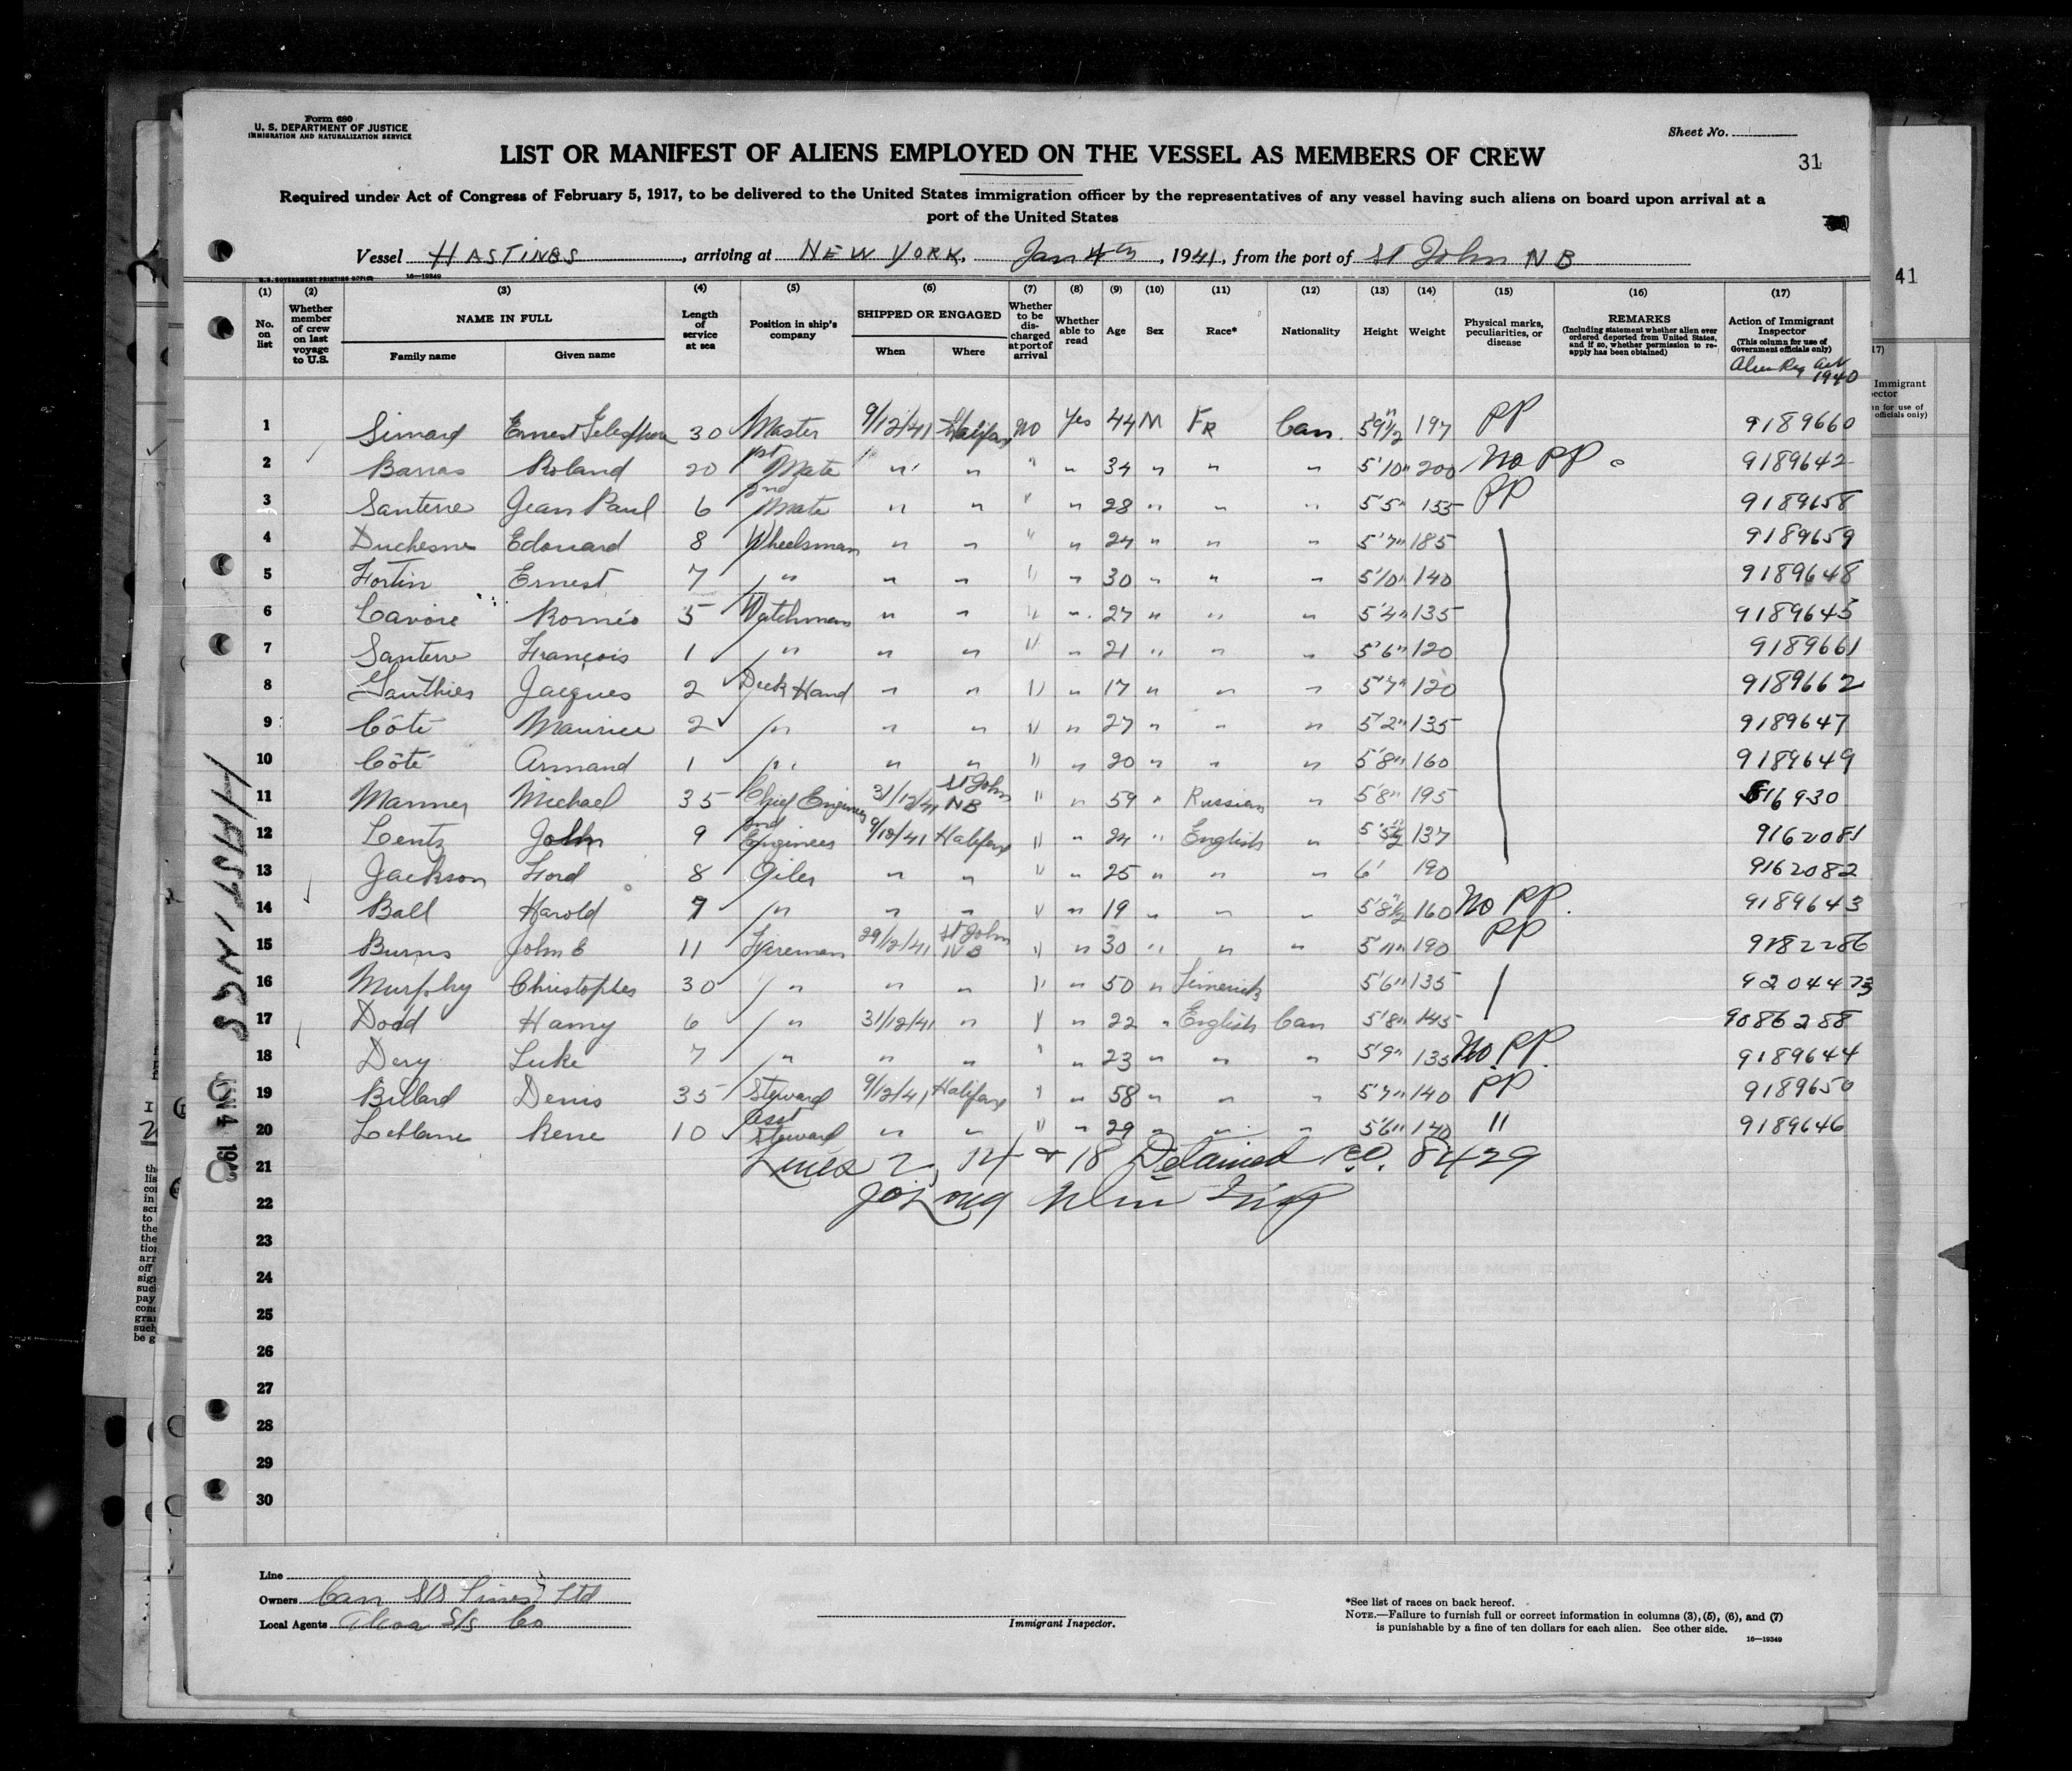 Form 680
U. S. DEPARTMENT OF JUSTICE
IMMIGRATION AND NATURALIZATION SERVICE
Sheet No.
LIST OR MANIFEST OF ALIENS EMPLOYED ON THE VESSEL AS MEMBERS OF CREW
31
Required under Act of Congress of February 5, 1917, to be delivered to the United States immigration officer by the representatives of any vessel having such aliens on board upon arrival at a
port of the United States
Vessel HASTINGS, arriving at NEW YORK, Jan 4th, 1941, from the port of St John N B
U. S. GOVERNMENT PRINTING OFFICE 16—19349
41
(1) No. on list
(2) Whether member of crew on last voyage to U.S.
(3) NAME IN FULL Family name Given name
(4) Length of service at sea
(5) Position in ship's company
(6) SHIPPED OR ENGAGED When Where
(7) Whether to be discharged at port of arrival
(8) Whether able to read
(9) Age
(10) Sex
(11) Race*
(12) Nationality
(13) Height
(14) Weight
(15) Physical marks, peculiarities, or disease
(16) REMARKS (Including statement whether alien ever ordered deported from United States, and if so, whether permission to reapply has been obtained)
(17) Action of Immigrant Inspector (This column for use of Government officials only)
Alien Reg Act 1940
1 Simard Ernest Telesphore 30 Master 9/12/41 Halifax No Yes 44 M FR Can. 5'9½" 197 PP 9189660
2 Barras Roland 20 1st Mate " " " " 34 " " " 5'10" 200 No PP 9189642
3 Santerre Jean Paul 6 2nd Mate " " " " 28 " " " 5'5" 155 PP 9189658
4 Duchesne Edouard 8 Wheelsman " " " " 24 " " " 5'7" 185 9189659
5 Fortin Ernest 7 " " " " " 30 " " " 5'10" 140 9189648
6 Roméo 5 Watchman " " " " 27 " " " 5'4" 135 9189645
7 Santerre François 1 " " " " " 21 " " " 5'6" 120 9189661
8 Gauthier Jacques 2 Deck Hand " " " " 17 " " " 5'7" 120 9189662
9 Côté Maurice 2 " " " " " 27 " " " 5'2" 135 9189647
10 Côté Armand 1 " " " " " 20 " " " 5'8" 160 9189649
11 Michael 35 Chief Engineer 31/12/41 St John NB " " 59 " Russian " 5'8" 195 516930
12 Lentz John 9 2nd Engineer 9/12/41 Halifax " " 24 " English " 5'5½" 137 9162081
13 Jackson Ford 8 Oiler " " " " 25 " " " 6' 190 9162082
14 Ball Harold 7 " " " " " 19 " " " 5'8½" 160 No PP. 9189643
15 Burns John E 11 Fireman 29/12/41 St John NB " " 30 " " " 5'11" 190 PP 9282286
16 Murphy Christopher 30 " " " " " 50 " Limerick 5'6" 135 9204473
17 Dodd Harry 6 " 31/12/41 " " " 22 " English Can 5'8" 145 9086288
18 Dery Luke 7 " " " " " 23 " " " 5'9" 135 No PP. 9189644
19 Billard Denis 35 Steward 9/12/41 Halifax " " 58 " " " 5'7" 140 PP 9189650
20 Rene 10 Asst Steward " " " " 29 " " " 5'6" 140 " 9189646
21 Lines 2, 14 & 18 Detained 8429
22
23
24
25
26
27
28
29
30
HASTINGS
JAN 4
Line
Owners Can S/S Lines Ltd
Local Agents Alcoa S/S Co
Immigrant Inspector.
*See list of races on back hereof.
NOTE.—Failure to furnish full or correct information in columns (3), (5), (6), and (7)
is punishable by a fine of ten dollars for each alien. See other side.
16—19349